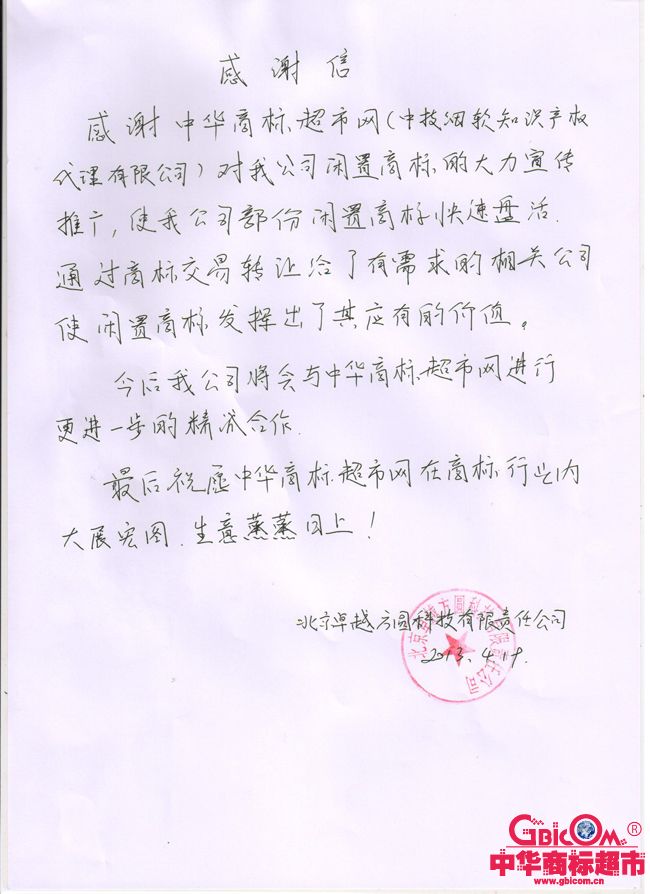 感谢信
感谢中华商标超市网(中技细软知识产权
代理有限公司)对我公司闲置商标的大力宣传
推广,使我公司部份闲置商标快速盘活.
通过商标交易转让给了有需求的相关公司
使闲置商标发挥出了其应有的价值。
今后我公司将会与中华商标超市网进行
更进一步的精诚合作.
最后祝愿中华商标超市网在商标行业内
大展宏图.生意蒸蒸日上!
北京卓越方圆科技有限责任公司
2013.4.19.
北京卓越方圆科技有限责任公司
GBICOM®
中华商标超市
www.gbicom.cn